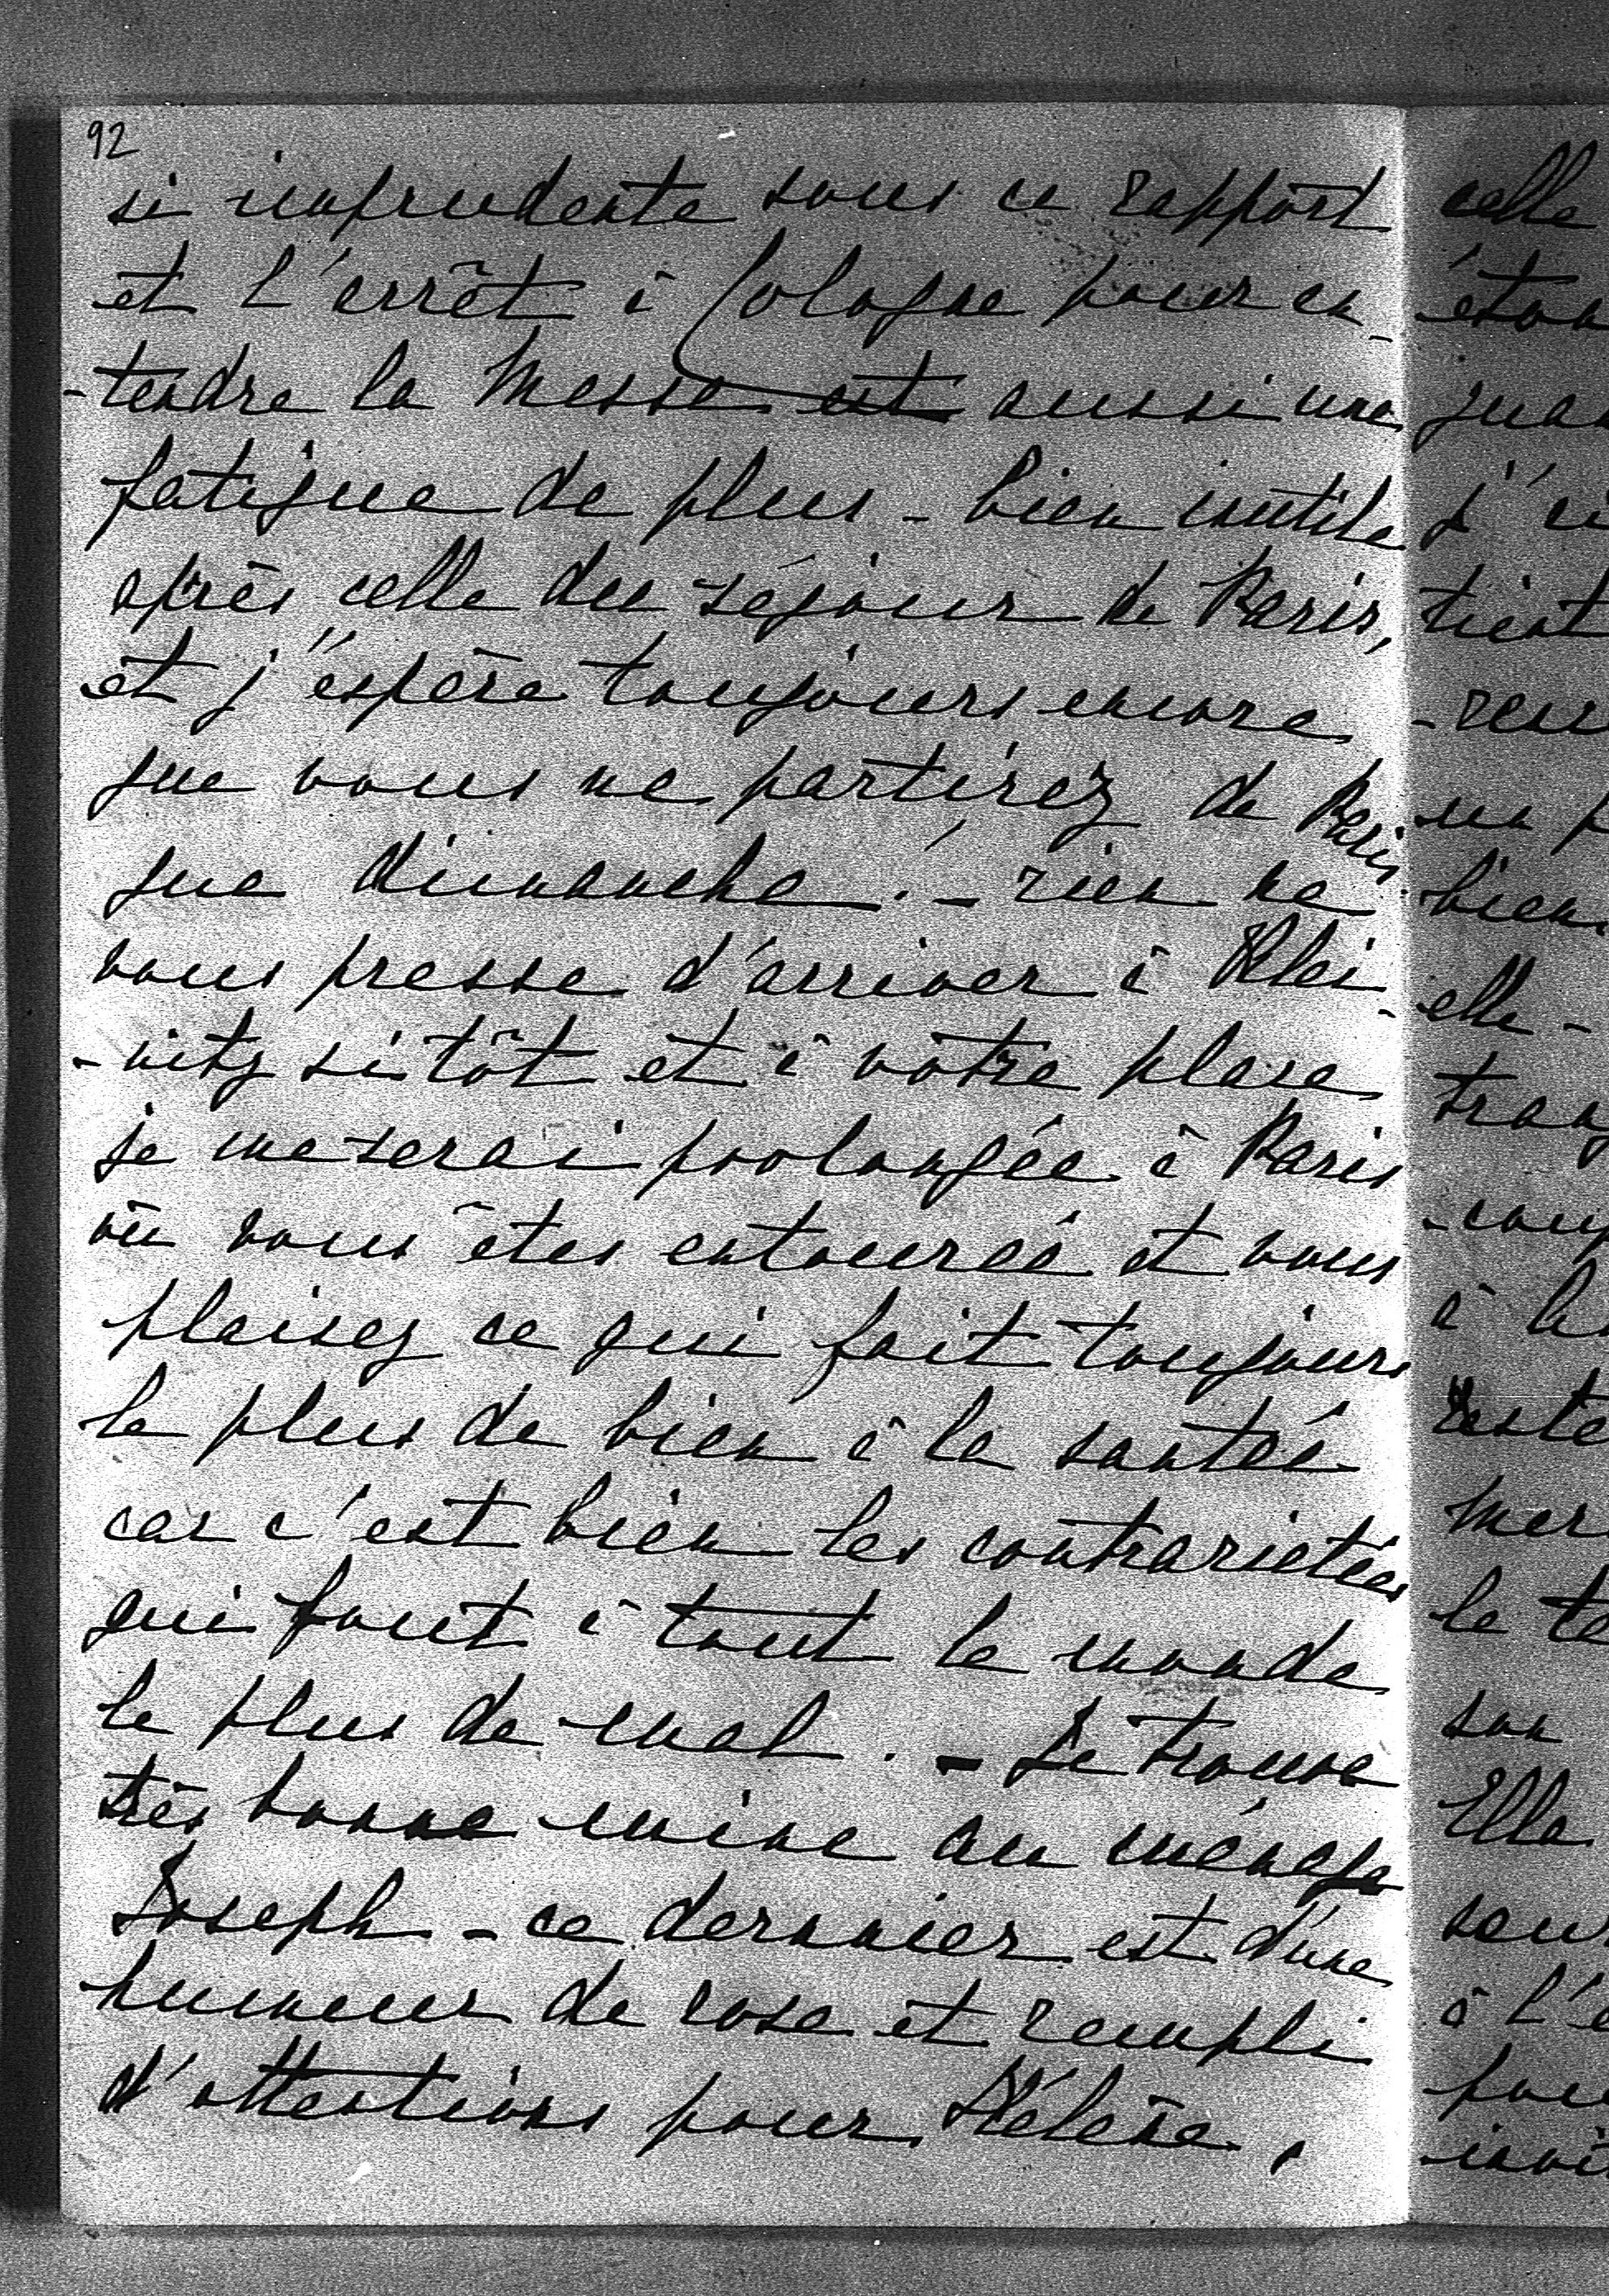 92
si imprudente sous ce rapport
et l'arrêt à Cologne pour en-
-tendre la Messe est aussi une
fatigue de plus - bien inutile
après celle du séjour de Paris,
et j'éspère toujours encore
que vous ne partirez de Paris
que dimanche. - rien ne
vous presse d'arriver à Klei-
-nitz sitôt et à vôtre place
je me serai prolongée à Paris
où vous êtes entourée et vous
plaisez ce qui fait toujours
le plus de bien à la santé
car c'est bien les contrarietées
qui font à tout le monde
le plus de mal. - Je trouve
très bonne mine au ménage
Joseph - ce dernier est d'une
humeur de rose et rempli
d'attentions pour Hélène.
celle
j'ai
tient
bien
elle -
Elle